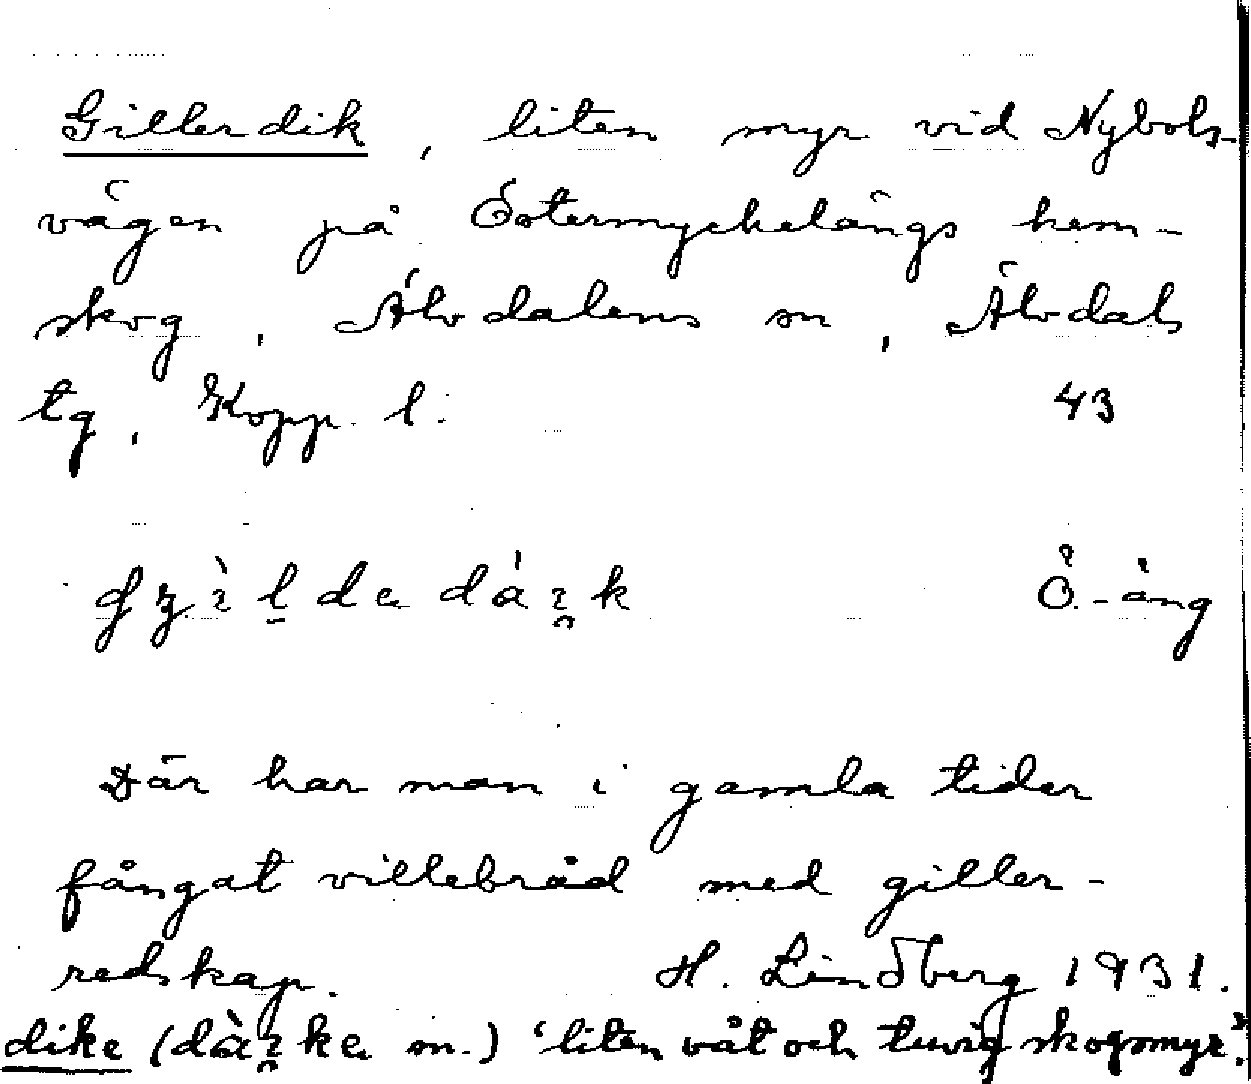 Gillerdik, liten myr vid Nybols-
vägen på Östermyckelängs hem-
skog, Älvdalens sn, Älvdals
tg, Kopp. l. 43
Ö-äng
Där har man i gamla tider
fångat villebråd med giller-
redskap. H. Lindberg 1931.
dike ( m.) 'liten våt och tuvig skogsmyr'.